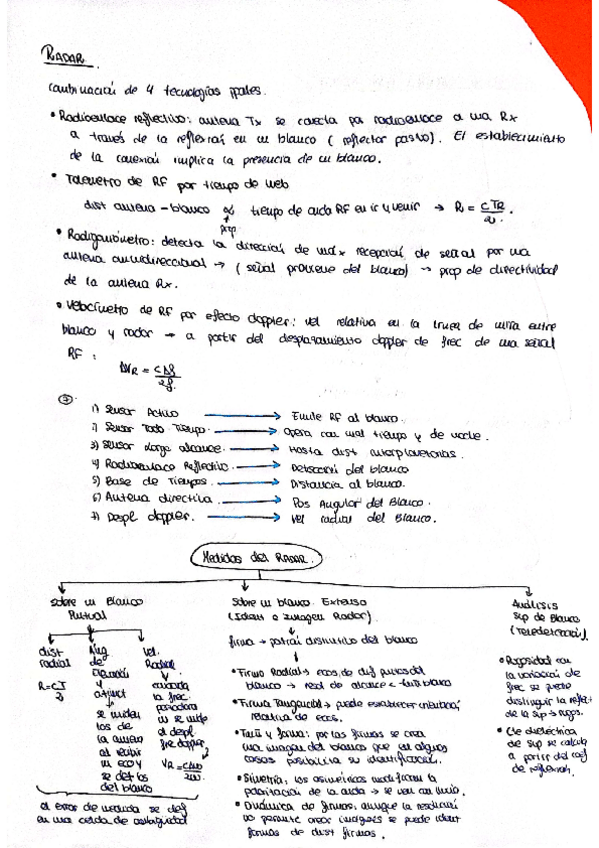 RADAR.
Combinación de 4 tecnologías ppales.
• Radioenlace reflectivo: antena Tx se conecta por radioenlace a una Rx
a través de la reflexión en un blanco (reflector pasivo). El establecimiento
de la conexión implica la presencia de un blanco.
• Telemetro de RF por tiempo de
dist antena - blanco ∝ tiempo de onda RF en ir y venir → R = cTR/2.
prop
• Radiogoniómetro: detecta la dirección de máx recepción de señal por una
antena omnidireccional → (señal proviene del blanco) → prop de directividad
de la antena Rx.
• Velocímetro de RF por efecto doppler: vel relativa en la línea de mira entre
blanco y radar → a partir del desplazamiento doppler de frec de una señal
RF:
1) Sensor Activo → Emite RF al blanco.
2) Sensor Todo Tiempo. → Opera con mal tiempo y de noche.
3) Sensor Largo alcance. → Hasta dist interplanetarias.
4) Radioenlace Reflectivo. → Detección del blanco
5) Base de Tiempos. → Distancia al blanco.
6) Antena directiva. → Pos Angular del Blanco.
7) Despl doppler. → Vel radial del Blanco.
Medidas del RADAR.
Sobre un Blanco
Puntual
dist
radial
R = cT/2
Ang
de
elevación
y
azimut
se miden
los de
la antena
al recibir
un eco y
se det los
del blanco
Vel.
Radial
cuando
la frec
portadora
se mide
el despl
frec doppler
el error de medida se def
en una celda de ambigüedad
Sobre un blanco Extenso
(Ident e Imagen Radar)
firma → patrón distintivo del blanco
• Firma Radial → ecos de dif puntos del
blanco → res
• Firma Tangencial → puede establecer orientación
relativa de ecos.
• Tam y forma: por las firmas se crea
una imagen del blanco que en algunos
casos posibilita su identificación.
• Simetría: los asimétricos modifican la
polarización de la onda → se ven con
• Dinámica de firmas: aunque la resolución
no permite crear imágenes se puede ident
formas de dist firmas.
Análisis
Sup de Blanco
(Teledetección)
• Rugosidad con
la variación de
frec se puede
distinguir la reflect
de la sup → rugos.
• Cte dieléctrica
de sup se calcula
a partir del coef
de reflexión.